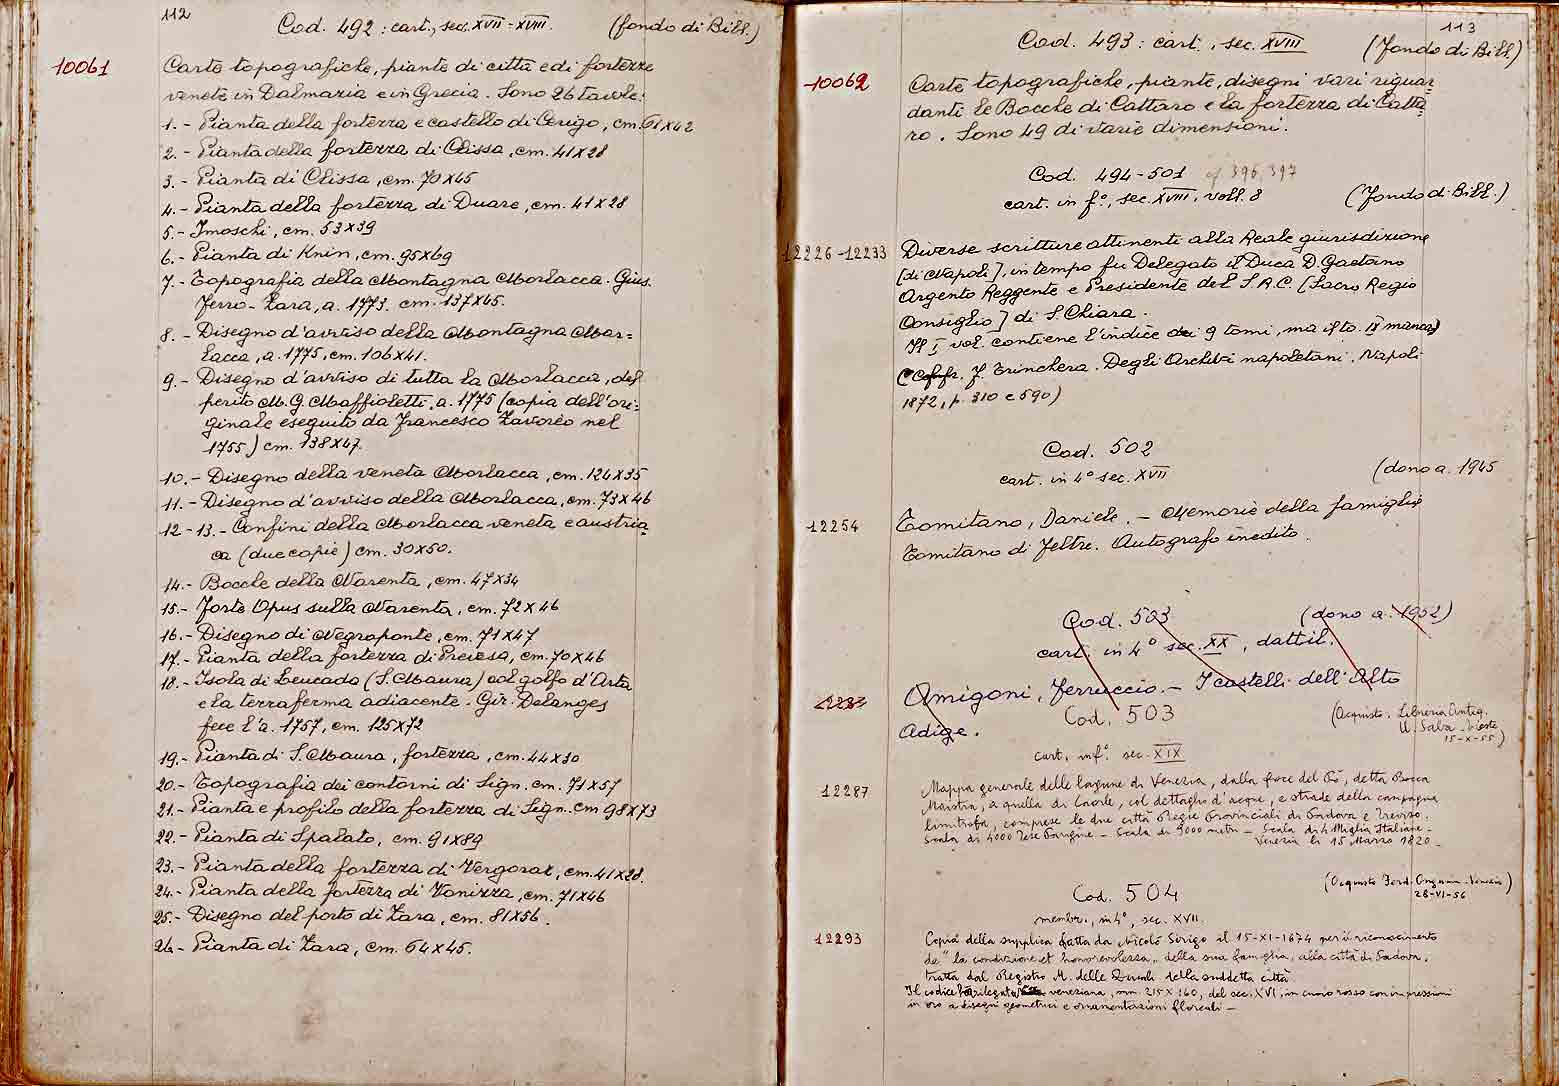 112
Cod. 492 : cart., sec. XVII - XVIII. (fondo di Bibl.)
10061
Carte topografiche, piante di città e di fortezze
venete in Dalmazia e in Grecia. Sono 26 tavole:
1.- Pianta della fortezza e castello di Cerigo, cm. 61x42
2.- Pianta della fortezza di Clissa, cm. 41x28
3.- Pianta di Clissa, cm. 70x45
4.- Pianta della fortezza di Duare, cm. 41x28
5.- Imoschi, cm. 53x39
6.- Pianta di Knin, cm. 95x69
7.- Topografia della Montagna Morlacca. Gius.
Ferro - Zara, a. 1773. cm. 137x45.
8.- Disegno d'avviso della Montagna Mor=
lacca, a. 1775, cm. 106x41.
9.- Disegno d'avviso di tutta la Morlacca, del
perito M. G. Maffioletti. a. 1775 (copia dell'ori=
ginale eseguito da Francesco Zavorèo nel
1755) cm. 138x47.
10.- Disegno della veneta Morlacca, cm. 124x35
11.- Disegno d'avviso della Morlacca, cm. 73x46
12-13.- Confini della Morlacca veneta e austria=
ca (due copie) cm. 30x50.
14.- Bocche della Narenta, cm. 47x34
15.- Forte Opus sulla Narenta, cm. 72x46
16.- Disegno di Negroponte, cm. 71x47
17.- Pianta della fortezza di Prevesa, cm. 70x46
18.- Isola di Leucada (S. Maura) col golfo d'Arta
e la terraferma adiacente. Gir. Delanges
fece l'a. 1757, cm. 125x72
19.- Pianta di S. Maura, fortezza, cm. 44x30
20.- Topografia dei contorni di Sign. cm. 71x57
21.- Pianta e profilo della fortezza di Sign. cm 98x73
22.- Pianta di Spalato, cm. 91x89
23.- Pianta della fortezza di Vergoraz, cm. 41x28.
24.- Pianta della fortezza di Vonizza, cm. 71x46
25.- Disegno del porto di Zara, cm. 81x56.
26.- Pianta di Zara, cm. 64x45.
113
Cod. 493 : cart., sec. XVIII (Fondo di Bibl.)
10062
Carte topografiche, piante, disegni vari riguar=
danti le Bocche di Cattaro e la fortezza di Catta=
ro. Sono 49 di varie dimensioni.
Cod. 494-501 cf 396, 397
cart. in f°., sec. XVIII, voll. 8 (Fondo di Bibl.)
12226-12233
Diverse scritture attinenti alla Reale giurisdizione
[di Napoli], in tempo fu Delegato il Duca D. Gaetano
Argento Reggente e Presidente del S.R.C. [Sacro Regio
Consiglio] di S. Chiara.
Il I vol. contiene l'indice dei 9 tomi, ma il to. IX manca)
(Cfr. F. Trinchera. Degli Archivi napoletani. Napoli
1872, p. 310 e 590)
Cod. 502
cart. in 4° sec. XVII (dono a. 1945
12254
Tomitano, Daniele. - Memorie della famiglia
Tomitano di Feltre. Autografo inedito.
Cod. 503 (dono a. 1952)
cart. in 4° sec. XX, dattil.
12287
Amigoni, Ferruccio. - I castelli dell'Alto
Adige.
Cod. 503
(Acquisto: Libreria Antiq.
U. Saba - Trieste
15-X-55)
cart. in f.° sec. XIX
12287
Mappa generale delle lagune di Venezia, dalla foce del Pò, detta Bocca
Maistra, a quella di Caorle, col dettaglio d'acque, e strade della campagna
limitrofa, comprese le due città Regie Provinciali di Padova e Treviso.
Scala di 4000 Tese Parigine - Scala di 9000 metri - Scala di 4 Miglia Italiane -
Venezia li 15 Marzo 1820.
Cod. 504
(Acquisto Ferd. Ongania - Venezia)
28-VI-56
membr., in 4°, sec. XVII.
12293
Copia della supplica fatta da Nicolò Sirigo il 15-XI-1674 per il riconoscimento
de "la condizione et honorevolezza" della sua famiglia, alla città di Padova,
tratta dal Registro M. delle Ducali della suddetta città
Il codice ha rilegatura veneziana, mm. 215x160, del sec. XVI, in cuoio rosso con impressioni
in oro a disegni geometrici e ornamentazioni floreali -